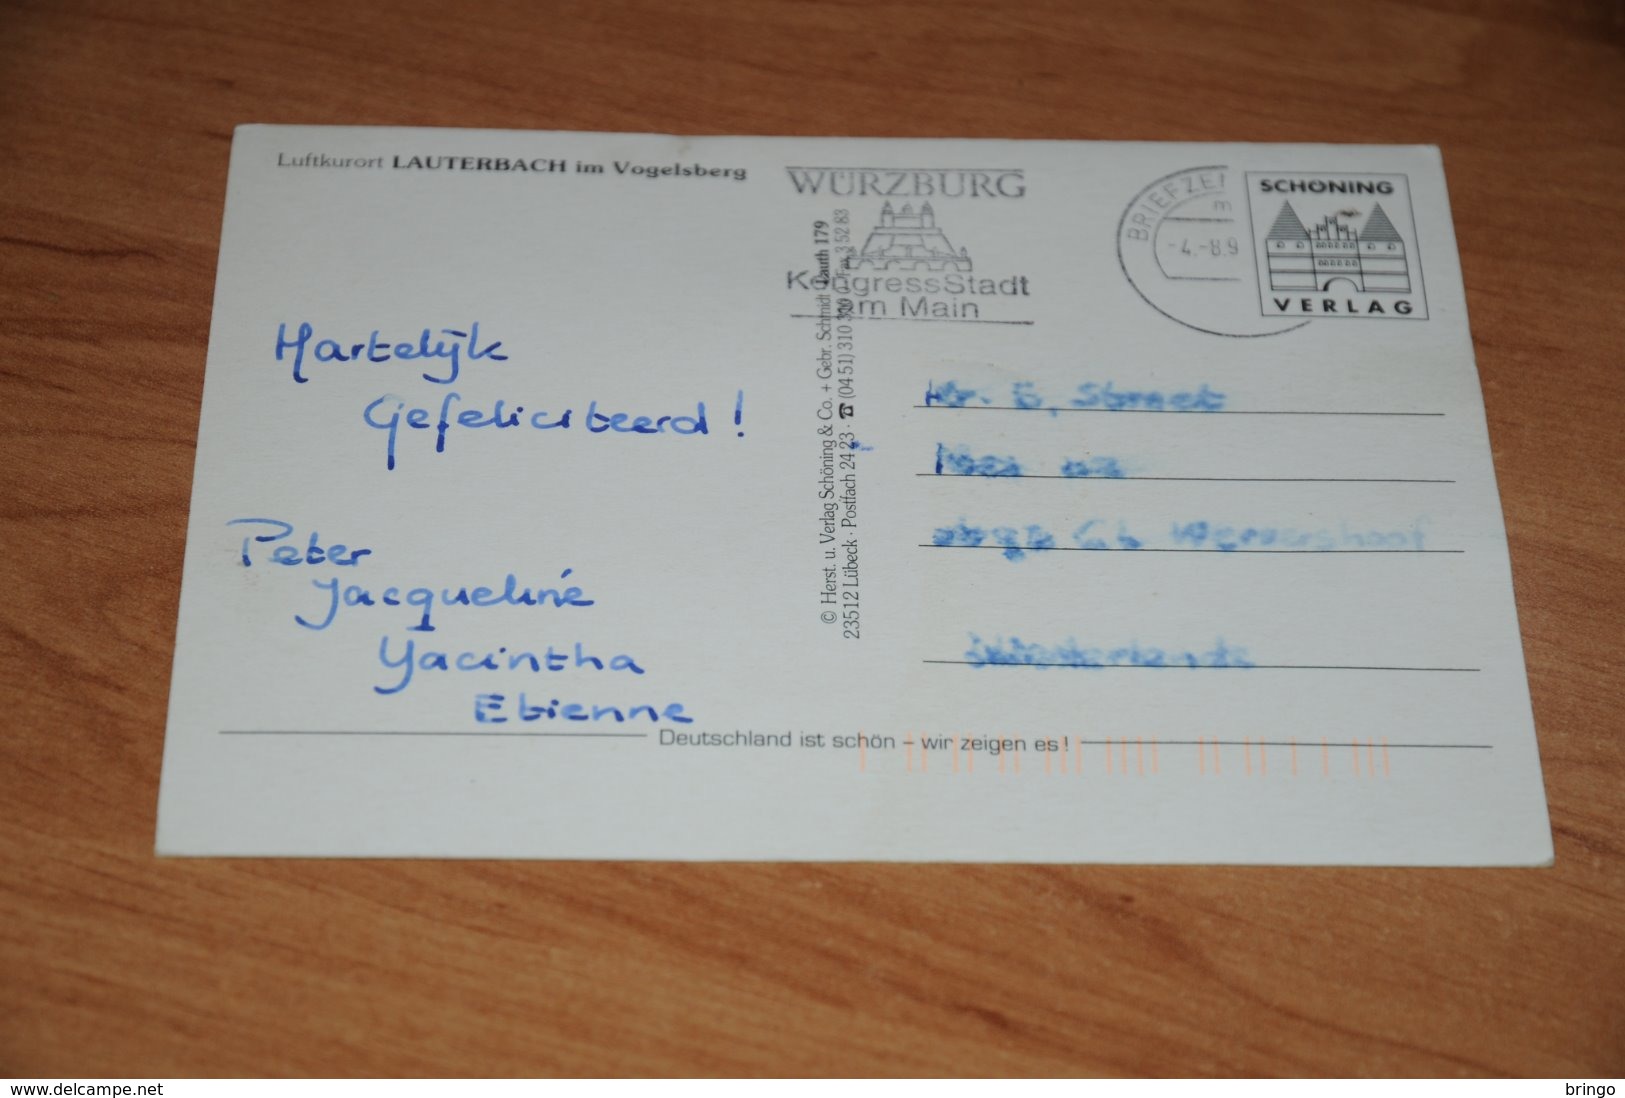 Luftkurort LAUTERBACH im Vogelsberg
WÜRZBURG
KongressStadt
am Main
BRIEFZE
m
-4.-8.9
SCHÖNING
VERLAG
Hartelijk
Gefeliciteerd!
Peter
Jacqueliné
Yacintha
Etienne
© Herst. u. Verlag Schöning & Co. + Gebr. Schmidt Lauth 179
23512 Lübeck · Postfach 24 23 · ☎ (04 51) 310 3 52 83
Wervershoof
Deutschland ist schön – wir zeigen es!
www.delcampe.net
bringo